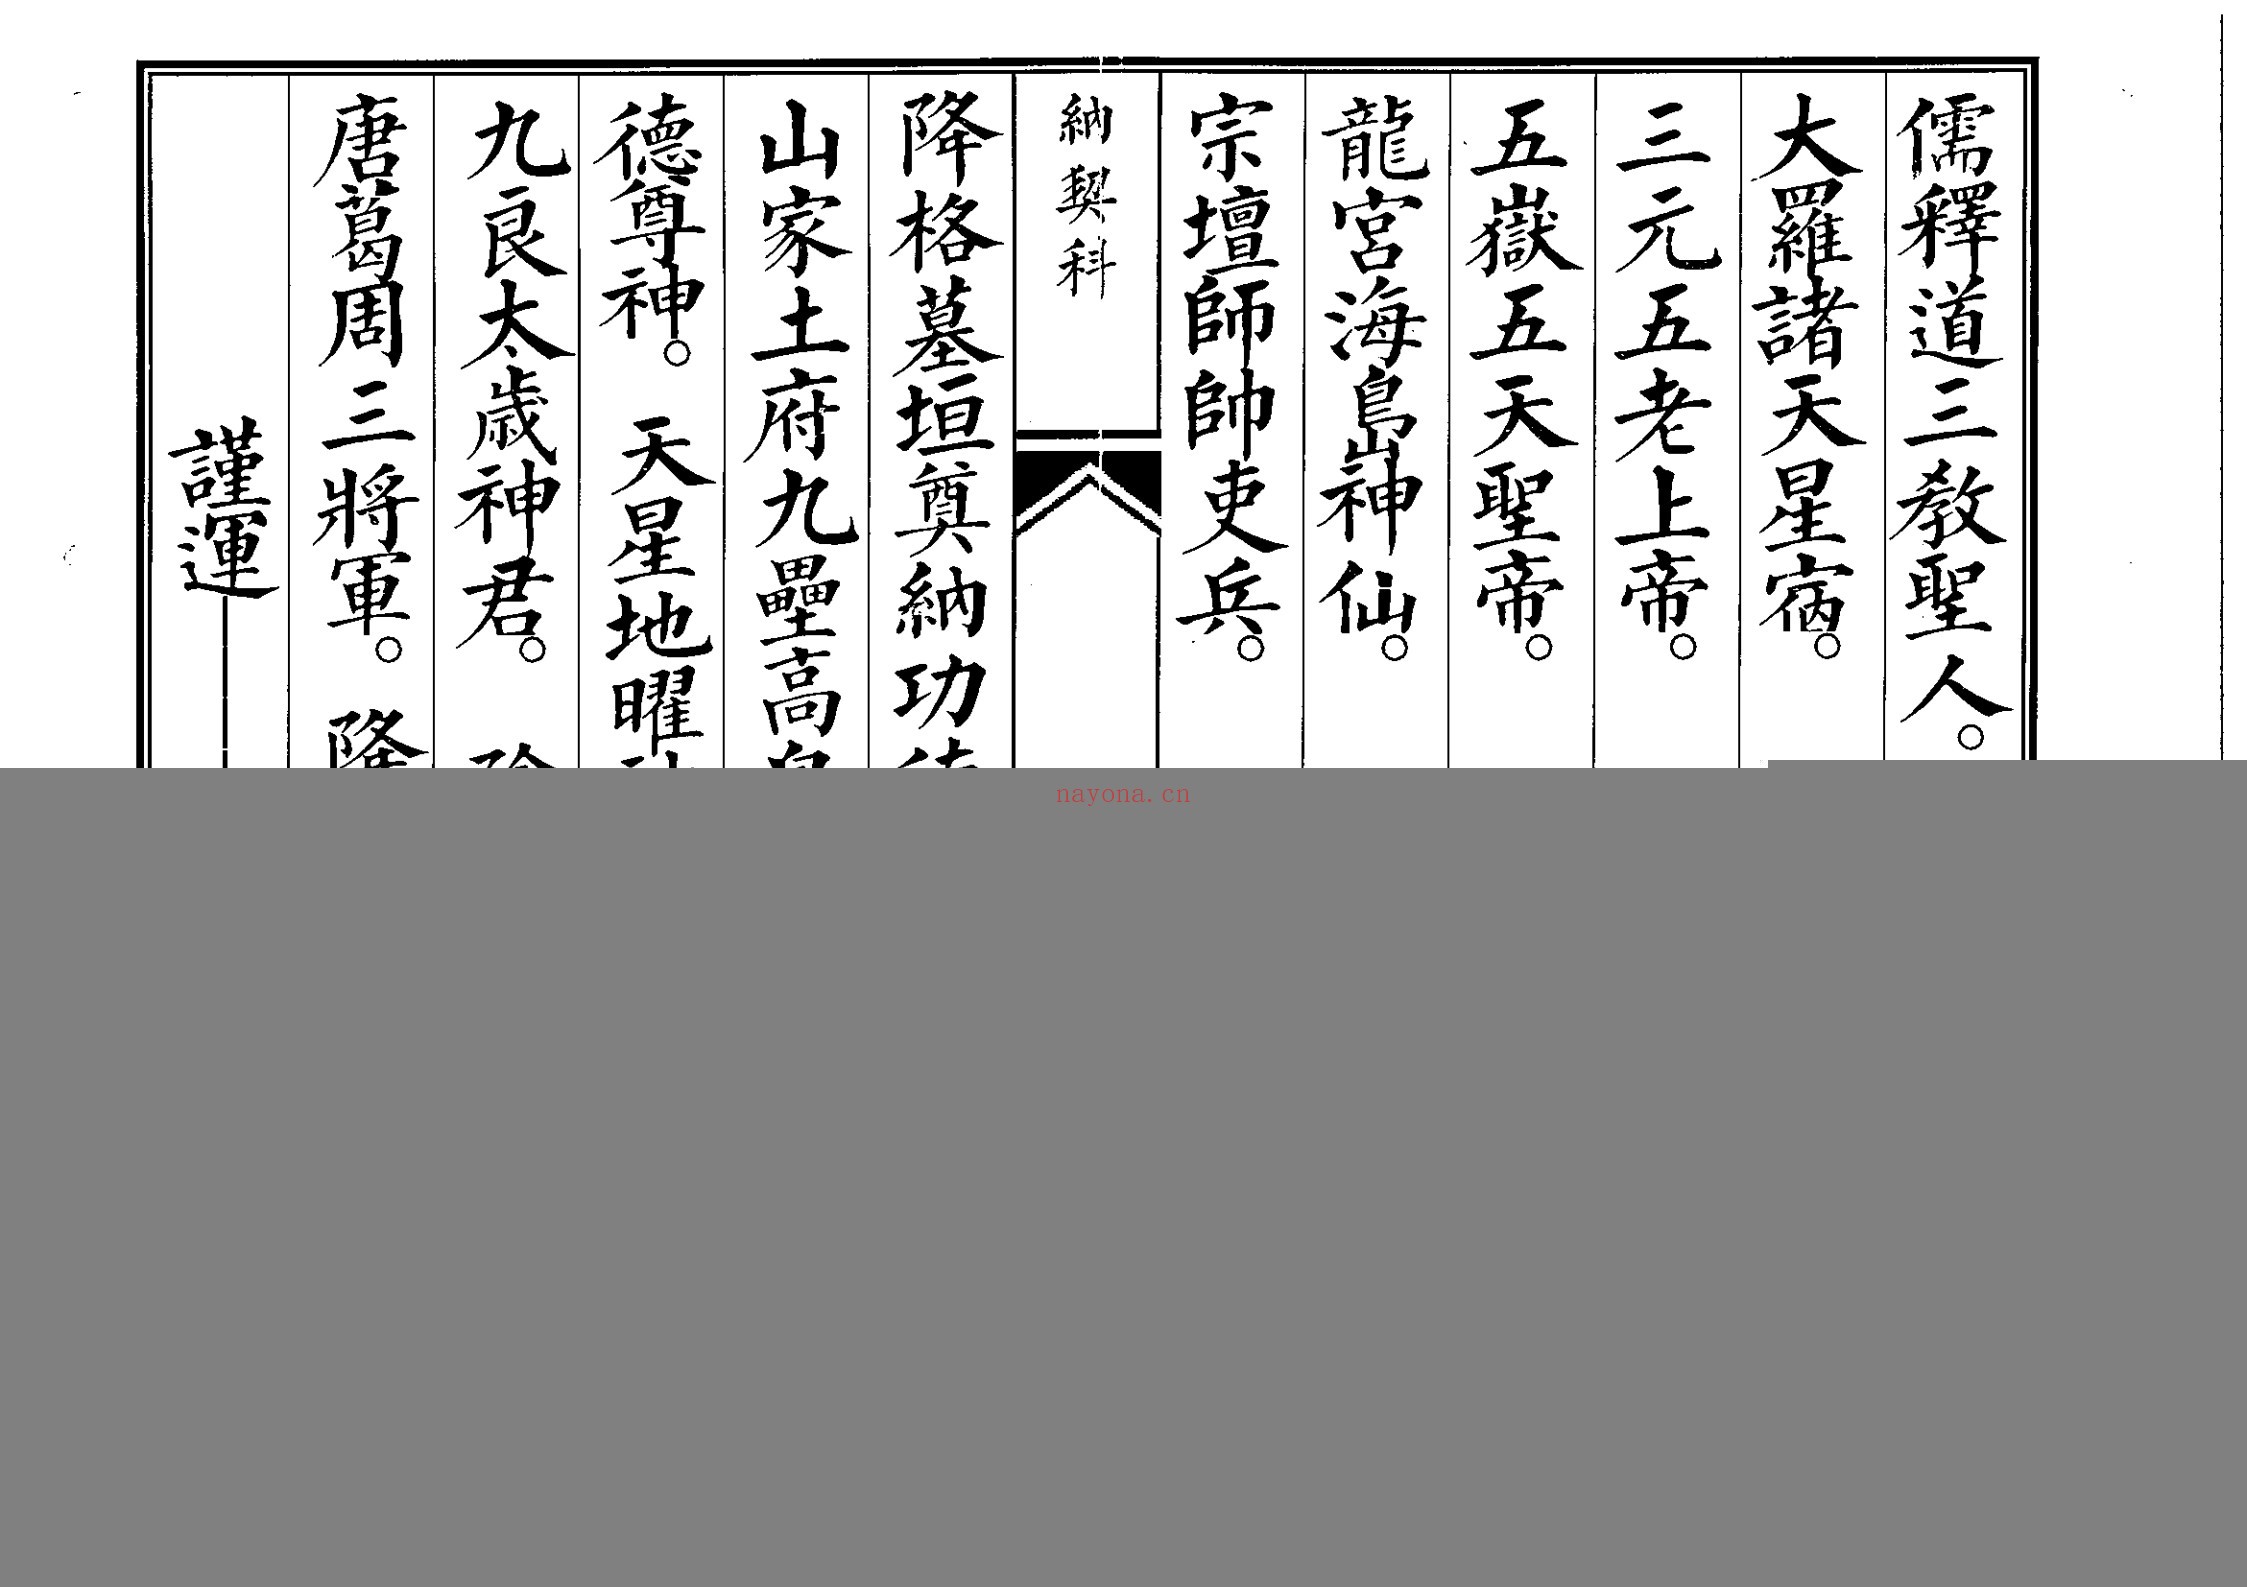 儒釋道三教聖人。
大羅諸天星宿。
三元五老上帝。
五嶽五天聖帝。
龍宮海島神仙。
宗壇師帥吏兵。
納契科
降格墓垣奠納功
山家土府九壘高
德尊神。 天星地曜
九良太歲神君。
唐葛周三將軍。 降
謹運
nayona.cn